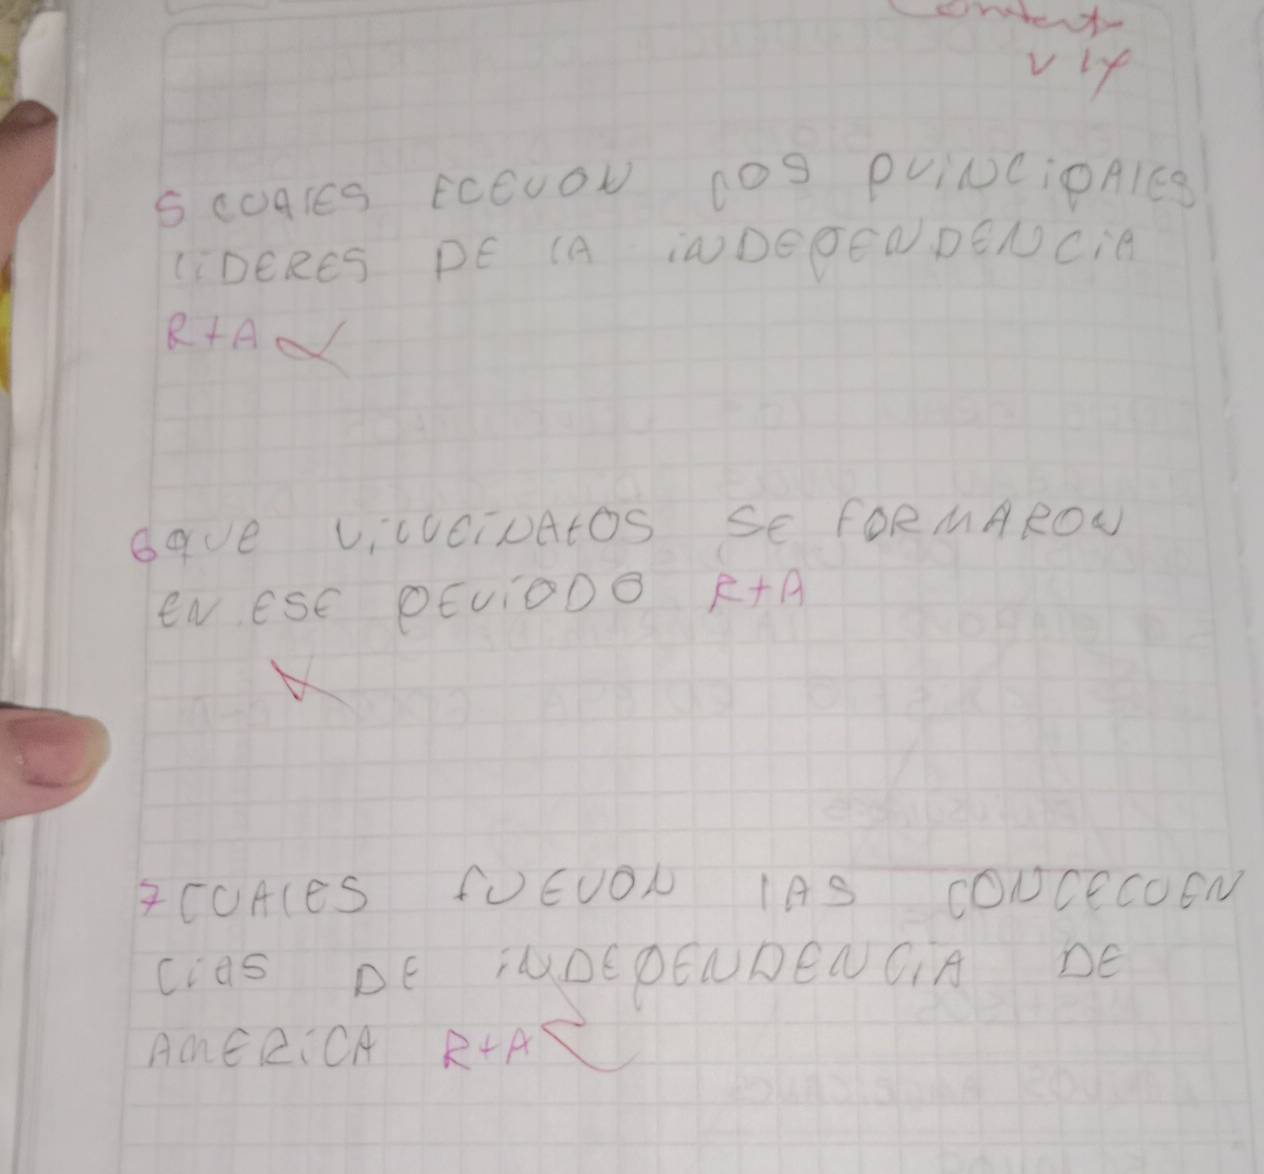 5 CUALES FCEUON LOS PUINCIPALES
LIDERES DE LA INDEPENDENCIA
R+A
6 QUE VIUUEINATOS SE FORMARON
EN ESE PEUIODO R+A
7 CUALES FUEUON LAS CONCECUEN
CIAS DE INDEPENDENCIA DE
AMERICA R+A